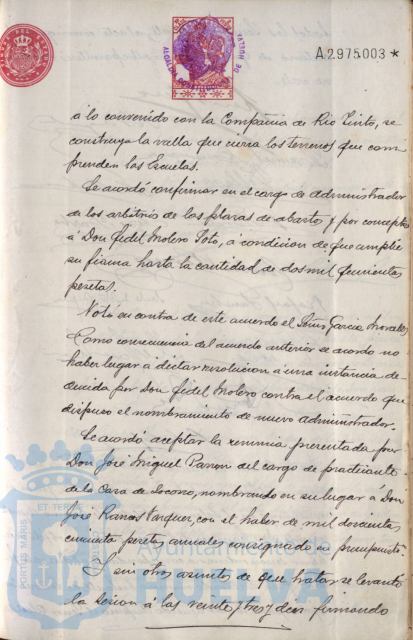 A.2.975.003 *
á lo convenido con la Compañia de Rio Tinto, se
construya la valla que cierra los terrenos que com
prenden las Escuelas.
Se acordó confirmar en el cargo de administrador
de los arbitrios de las plazas de abasto y por concepto
á Don Fidel Molero Soto, á condicion de que amplie
su fianza hasta la cantidad de dos mil quinientas
pesetas.
Votó en contra de este acuerdo el Señor Garcia Morales
Como consecuencia del acuerdo anterior se acordó no
haber lugar a dictar resolucion a una instancia de-
ducida por Don Fidel Molero contra el acuerdo que
dispuso el nombramiento de nuevo administrador.
Se acordó aceptar la renuncia presentada por
Don José Miguel Pavon del cargo de practicante
de la Casa de Socorro, nombrando en su lugar á Don
José Ramos Vazquez, con el haber de mil doscientas
cincuenta pesetas anuales consignado en presupuesto.
Y sin otros asuntos de que tratar se levantó
la sesion á las veinte y tres y diez firmando
PORTUS MARIS
ET TERRE
Ayuntamiento de
HUELVA